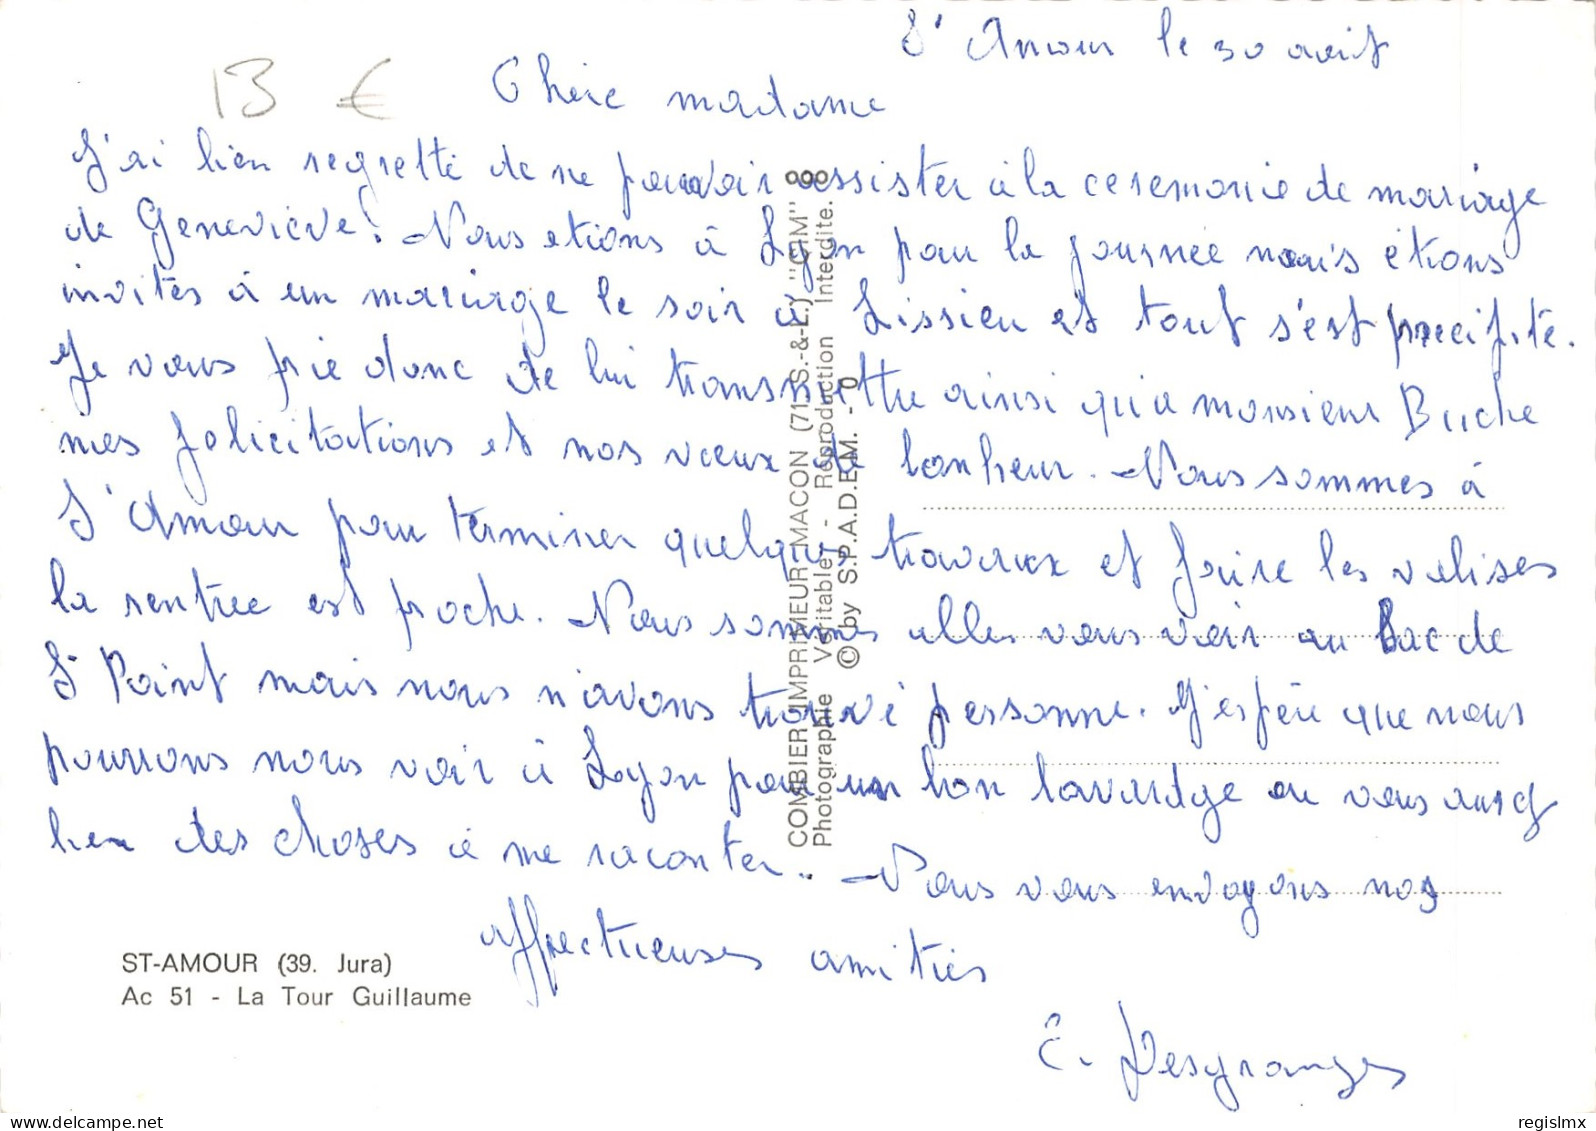 St Amour le 30 août
13 €
Chère madame
J'ai bien regretté de ne pouvoir assister à la ceremonie de mariage
de Geneviève. Nous etions à Lyon pour la journée mais étions
invités à un mariage le soir à Lissieu et tout s'est precipité.
Je vous prie donc de lui transmettre ainsi qu'a monsieur Buche
mes felicitations et nos vœux de bonheur. Nous sommes à
St Amour pour terminer quelques travaux et faire les valises
la rentrée est proche. Nous sommes allés vous voir au Lac de
St Point mais nous n'avons trouvé personne. J'espère que nous
pourrons nous voir à Lyon pour un bon bavardge ou vous aurez
bien des choses à me raconter. Nous vous envoyons nos
affectueuses amitiés
C. Desgranges
ST-AMOUR (39. Jura)
Ac 51 - La Tour Guillaume
COMBIER IMPRIMEUR MACON (71. S.-&-L.) "CIM"
Photographie Véritable - Reproduction Interdite.
© by S.P.A.D.E.M. - 0
delcampe.net
regislmx